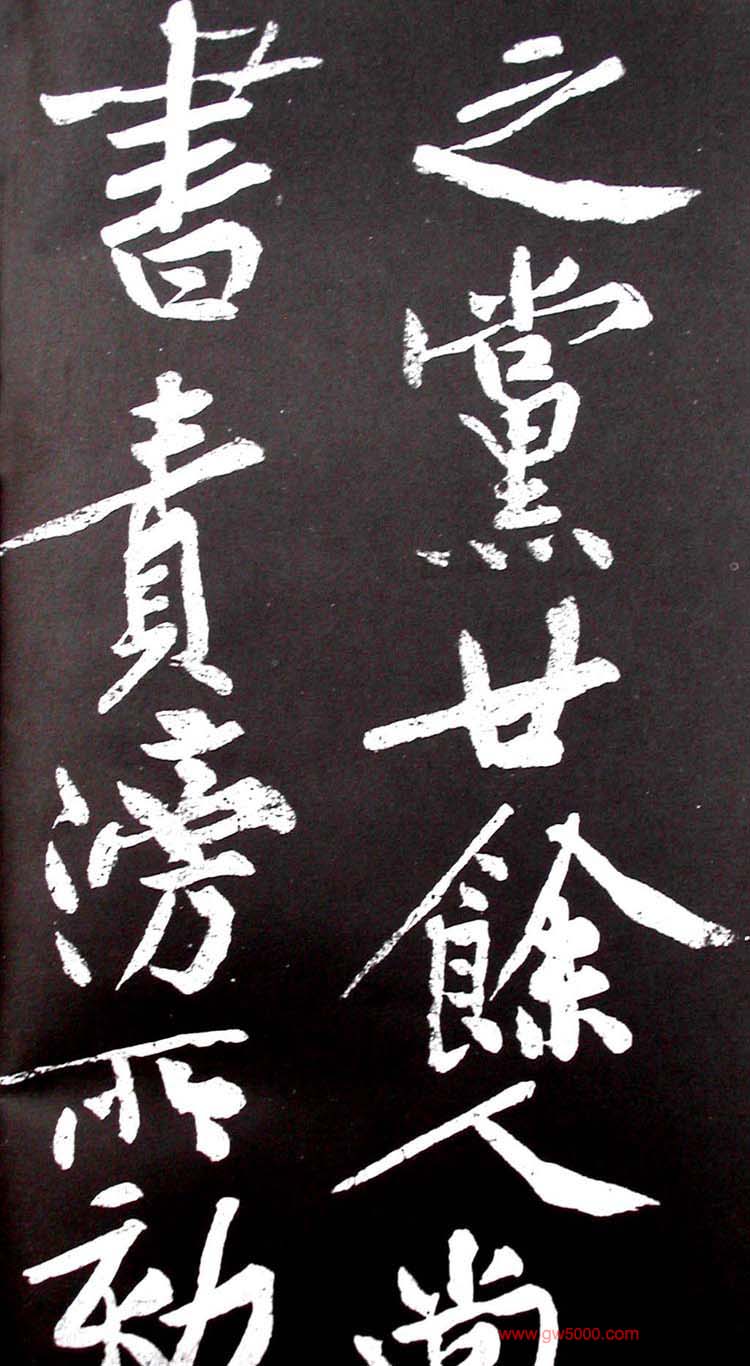 之黨廿餘人尚
書責滂所劾
www.gw5000.com